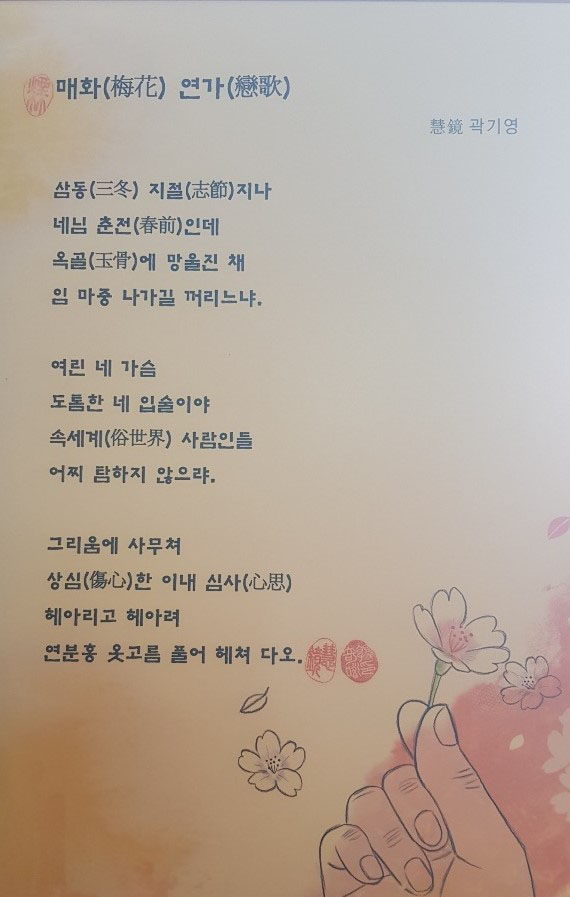 매화(梅花) 연가(戀歌)
慧鏡 곽기영
삼동(三冬) 지절(志節)지나
네님 춘전(春前)인데
옥골(玉骨)에 망울진 채
임 마중 나가길 꺼리느냐.
여린 네 가슴
도톰한 네 입술이야
속세계(俗世界) 사람인들
어찌 탐하지 않으랴.
그리움에 사무쳐
상심(傷心)한 이내 심사(心思)
헤아리고 헤아려
연분홍 옷고름 풀어 헤쳐 다오.